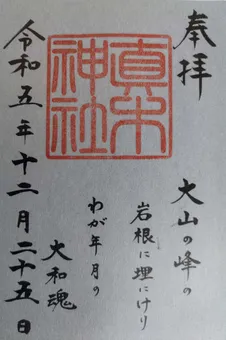 奉拝
真木
神社
大山の峰の
岩根に埋にけり
わが年月の
大和魂
令和五年十二月二十五日